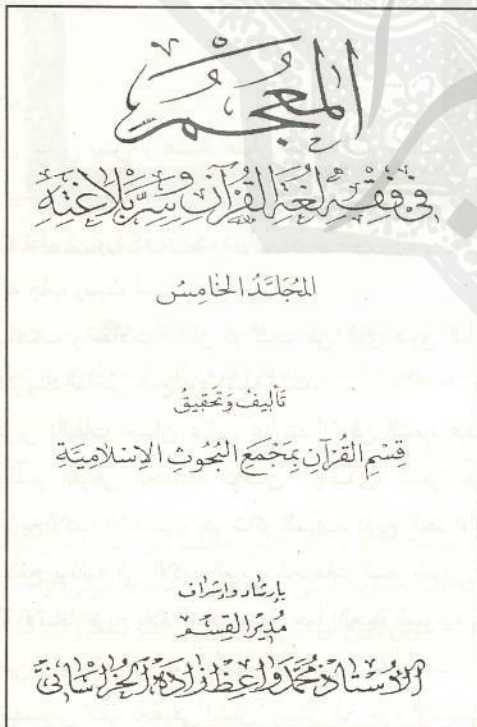 المُعْجَمُ
فِي فِقْهِ لُغَةِ القُرْآنِ وَسِرِّ بَلاغَتِهِ
المُجَلَّدُ الخَامِسُ
تَأليفُ وَتَحقيقُ
قِسْمِ القُرْآنِ بِمَجْمَعِ البُحُوثِ الإسْلامِيَّةِ
بإرشاد وإشراف
مُدِيرُ القِسْمِ
الأُسْتَاذ مُحَمَّد وَاعِظ زَادَه الخُرَاسَانِيّ